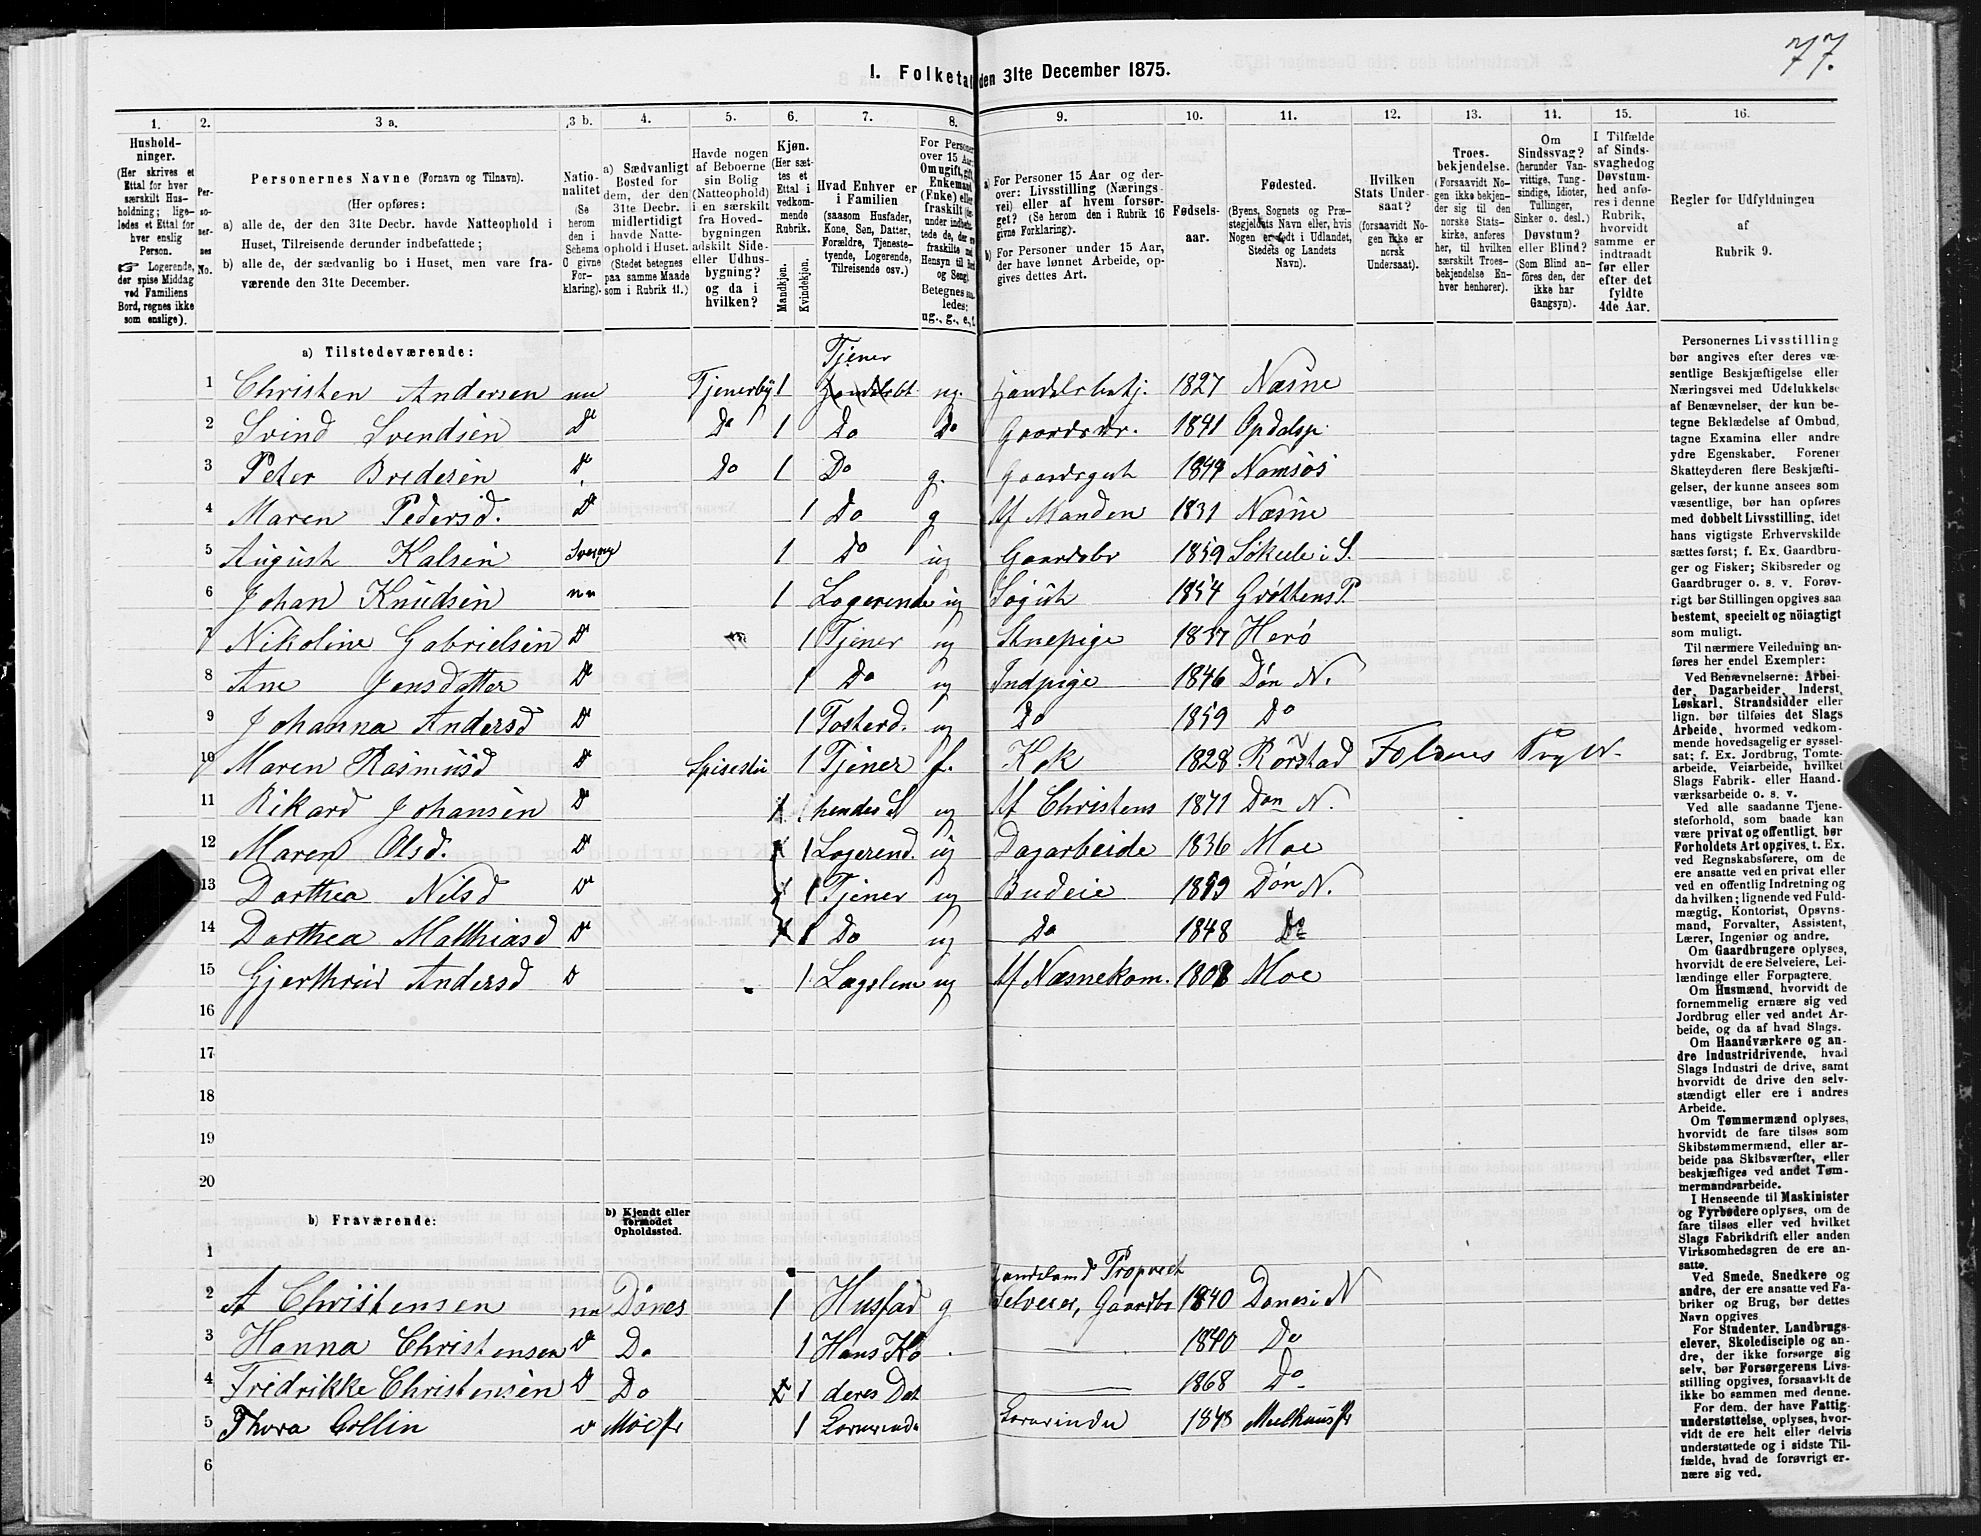 77.
I. Folketal den 31te December 1875.
1. 2. 3 a. 3 b. 4. 5. 6. 7. 8. 9. 10. 11. 12. 13. 14. 15. 16.
Hushold-
ninger.
(Her skrives et
Ettal for hver
særskilt Hus-
holdning; lige-
ledes et Ettal for
hver enslig
Person.
☞ Logerende,
der spise Middag
ved Familiens
Bord, regnes ikke
som enslige).
Per-
so-
ner-
nes
No.
Personernes Navne (Fornavn og Tilnavn).
(Her opføres:
a) alle de, der den 31te Decbr. havde Natteophold i
Huset, Tilreisende derunder indbefattede;
b) alle de, der sædvanlig bo i Huset, men vare fra-
værende den 31te December.
Natio-
nalitet
(Se
herom
den i
Schema
C givne
For-
klaring).
a) Sædvanligt
Bosted for
dem, der den
31te Decbr.
midlertidigt
havde Natte-
ophold i Huset.
(Stedet betegnes
paa samme Maade
som i Rubrik 11.)
Havde nogen
af Beboerne
sin Bolig
(Natteophold)
i en særskilt
fra Hoved-
bygningen
adskilt Side-
eller Udhus-
bygning?
og da i
hvilken?
Kjøn.
(Her sæt-
tes et
Ettal i
vedkom-
mende
Rubrik.
Mandkjøn.
Kvindekjøn.
Hvad Enhver er
i Familien
(saasom Husfader,
Kone, Søn, Datter,
Forældre, Tjeneste-
tyende, Logerende,
Tilreisende osv.)
For Personer
over 15 Aar:
Om ugift, gift,
Enkemand
(Enke) eller
fraskilt
Betegnes saa-
ledes:
ug., g., e., f.
a) For Personer 15 Aar og der-
over: Livsstilling (Nærings-
vei) eller af hvem forsør-
get? (Se herom den i Rubrik 16
givne Forklaring).
b) For Personer under 15 Aar,
der have lønnet Arbeide, op-
gives dettes Art.
Fødsels-
aar.
Fødested.
(Byens, Sognets og Præ-
stegjeldets Navn eller, hvis
Nogen er født i Udlandet,
Stedets og Landets
Navn).
Hvilken
Stats Under-
saat?
(forsaavidt No-
gen ikke er
norsk
Undersaat).
Troes-
bekjendelse.
(Forsaavidt No-
gen ikke bekjen-
der sig til den
norske Stats-
kirke, anføres
her, til hvilken
særskilt Troes-
bekjendelse En-
hver henhører).
Om
Sindssvag?
(herunder Van-
vittige, Tung-
sindige, Idioter,
Tullinger,
Sinker o. desl.)
Døvstum?
eller Blind?
(Som Blind an-
føres den, der
ikke har
Gangsyn).
I Tilfælde
af Sinds-
svaghed og
Døvstum-
hed anfø-
res i denne
Rubrik,
hvorvidt
samme er
indtraadt
før eller
efter det
fyldte
4de Aar.
Regler for Udfyldningen
af
Rubrik 9.
a) Tilstedeværende:
Tjener
1 Christen Andersen nn Tjenerby 1 ug. Handelsbetj. 1827 Næsne
2 Svind Svendsen Do Do 1 Do Do Gaardsdr. 1841 Opdalsp.
3 Peter Bredesen Do Do 1 Do g. Gaardsgut 1849 Namsos
4 Maren Pedersd. Do 1 Do g Af Manden 1831 Næsne
5 August Kalsen Sverrig 1 Do ug Gaardsbr 1859 i S.
6 Johan Knudsen nn 1 Logerende ug 1854
7 Nikoline Gabrielsen Do 1 Tjener ug Stuepige 1857 Herø
8 Ane Jensdatter Do 1 Do ug Indpige 1846 Døn N.
9 Johanna Andersd Do 1 Fosterd. ug Do 1859 Do
10 Maren Rasmusd Do Spisestu 1 Tjener f. Kok 1828 Rørstad Foldens Prg N.
11 Rikard Johansen Do 1 hendes S ug Af Christens 1871 Døn N.
12 Maren Olsd. Do 1 Logerend. ug Dagarbeide 1836 Moe
13 Dorthea Nilsd Do 1 Tjener ug Budeie 1859 Døn N.
14 Dorthea Matthiasd Do 1 Do ug Do 1848 Do
15 Gjerthrud Andersd D 1 Lægslem ug Af Næsnekom. 1808 Moe
16
17
18
19
20
b) Fraværende:
b) Kjendt eller
formodet
Opholdssted.
1
Handelsmd Propriet
2 A Christensen nn Dønes 1 Husfad g Selveier, Gaardbr 1840 Dønes i N
3 Hanna Christensen Do Do 1 Hans Ko 1840 Do
4 Fridrikke Christensen Do Do 1 deres Dat 1868 Do
5 Thora Collin Do Moe Pr 1 Lærerinde Lærerinde 1848 Meelhuus Pr
6
Personernes Livsstilling
bør angives efter deres væ-
sentlige Beskjæftigelse eller
Næringsvei med Udelukkelse
af Benævnelser, der kun be-
tegne Beklædelse af Ombud,
tagne Examina eller andre
ydre Egenskaber. Forener
Skatteyderen flere Beskjæfti-
gelser, der kunne ansees som
væsentlige, bør han opføres
med dobbelt Livsstilling, idet
hans vigtigste Erhvervskilde
sættes først; f. Ex. Gaardbru-
ger og Fisker; Skibsreder og
Gaardbruger o. s. v. Forøv-
rigt bør Stillingen opgives saa
bestemt, specielt og nöiagtigt
som muligt.
Til nærmere Veiledning an-
føres her endel Exempler:
Ved Benævnelserne: Arbei-
der, Dagarbeider, Inderst,
Løskarl, Strandsidder eller
lign. bør tilføies det Slags
Arbeide, hvormed vedkom-
mende hovedsagelig er syssel-
sat; f. Ex. Jordbrug, Tomte-
arbeide, Veiarbeide, hvilket
Slags Fabrik- eller Haand-
værksarbeide o. s. v.
Ved alle saadanne Tjene-
steforhold, som baade kan
være privat og offentligt, bør
Forholdets Art opgives, t. Ex.
ved Regnskabsførere, om de
ere ansatte ved en privat eller
ved en offentlig Indretning og
da hvilken; lignende ved Fuld-
mægtig, Kontorist, Opsyns-
mand, Forvalter, Assistent,
Lærer, Ingeniør og andre.
Om Gaardbrugere oplyses,
hvorvidt de ere Selveiere, Lei-
lændinge eller Forpagtere.
Om Husmænd, hvorvidt de
fornemmelig ernære sig ved
Jordbrug eller ved andet Ar-
beide, og da af hvad Slags.
Om Haandværkere og an-
dre Industridrivende, hvad
Slags Industri de drive, samt
hvorvidt de drive den selv-
stændigt eller ere i andres
Arbeide.
Om Tømmermænd oplyses,
hvorvidt de fare tilsøs som
Skibstømmermænd, eller ar-
beide paa Skibsværfter, eller
beskjæftiges ved andet Tøm-
mermandsarbeide.
I Henseende til Maskinister
og Fyrbødere oplyses, om de
fare tilsøs eller ved hvilket
Slags Fabrikdrift eller anden
Virksomhedsgren de ere an-
satte.
Ved Smede, Snedkere og
andre, der ere ansatte ved Fa-
briker og Brug, bør dettes
Navn opgives
For Studenter, Landbrugs-
elever, Skoledisciple og an-
dre, der ikke forsørge sig
selv, bør Forsørgerens Livs-
stilling opgives, forsaavidt de
ikke bo sammen med denne.
For dem, der have Fattig-
understøttelse, oplyses, hvor-
vidt de ere helt eller delvis
understøttede og i sidste Til-
fælde, hvad de forøvrigt er-
nære sig ved.